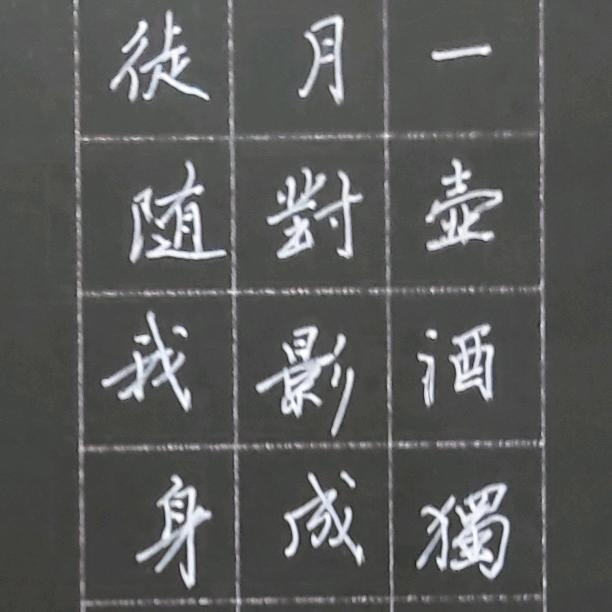 一壺酒獨
月對影成
徒随我身